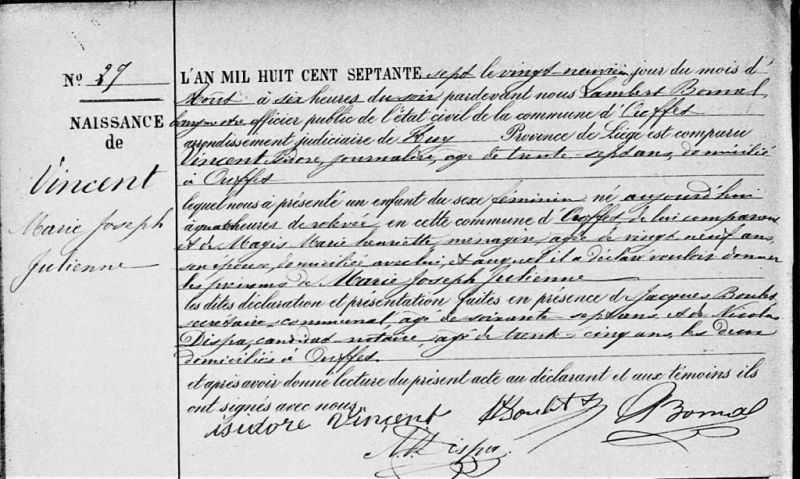 N.º 27
NAISSANCE
de
Vincent
Marie Joseph
Julienne
L'AN MIL HUIT CENT SEPTANTE sept le vingt neuvième jour du mois d'
Août à six heures du soir pardevant nous Lambert Bomal,
bourgmestre officier public de l'état civil de la commune d'Oreffet
arrondissement judiciaire de Huy Province de Liége est comparu
Vincent Isidore, journalier, agé de trente-sept ans, domicilié
à Oreffet
lequel nous a présenté un enfant du sexe féminin né aujourd'hui
à quatre heures de relevée, en cette commune d'Oreffet de lui comparant
et de Magis Marie henriette, ménagère, agée de vingt neuf ans,
son épouse, domiciliée avec lui, et auquel il a déclaré vouloir donner
les prénoms de Marie Joseph Julienne
les dites déclaration et présentation faites en présence de Jacques
secrétaire communal, agé de soixante-sept ans et de Nicolas
Dispa, candidat notaire, agé de trente-cinq ans, les deux
domiciliés à Oreffet.
et après avoir donné lecture du présent acte au déclarant et aux témoins ils
ont signés avec nous.
isidore Vincent
Bomal
N. Dispa